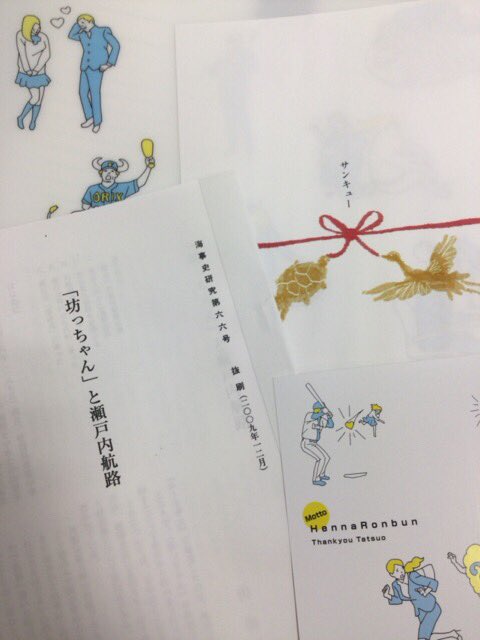 サンキュー
海事史研究第六六号 抜刷(二〇〇九年一二月)
「坊っちゃん」と瀬戸内航路
Motto
HennaRonbun
Thankyou Tatsuo